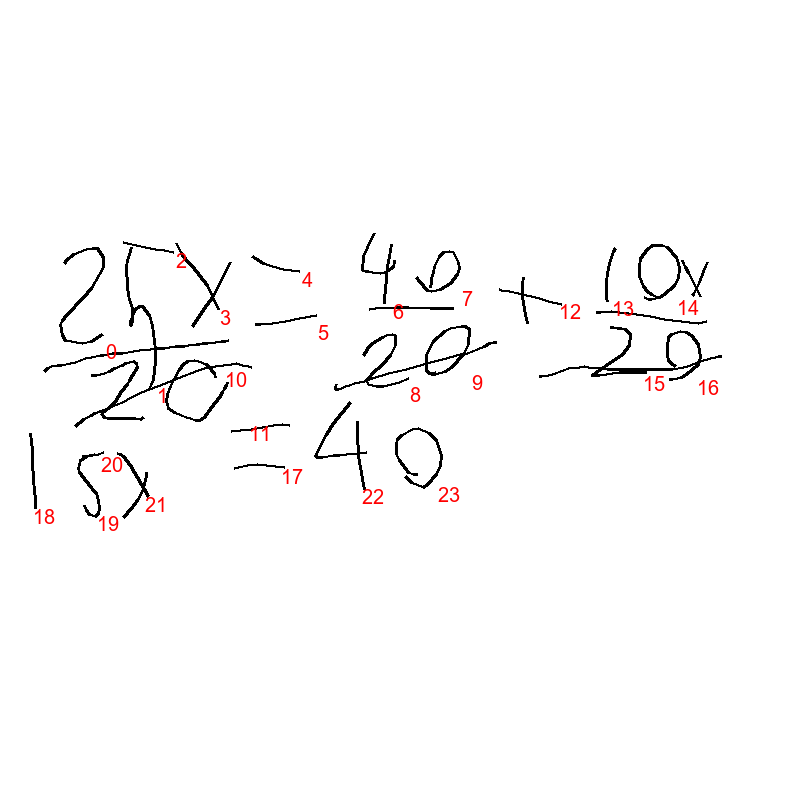 25x/20 = 40/20 + 10x/20
15x = 40
0 1 2 3 4 5 6 7 8 9 10 11 12 13 14 15 16 17 18 19 20 21 22 23